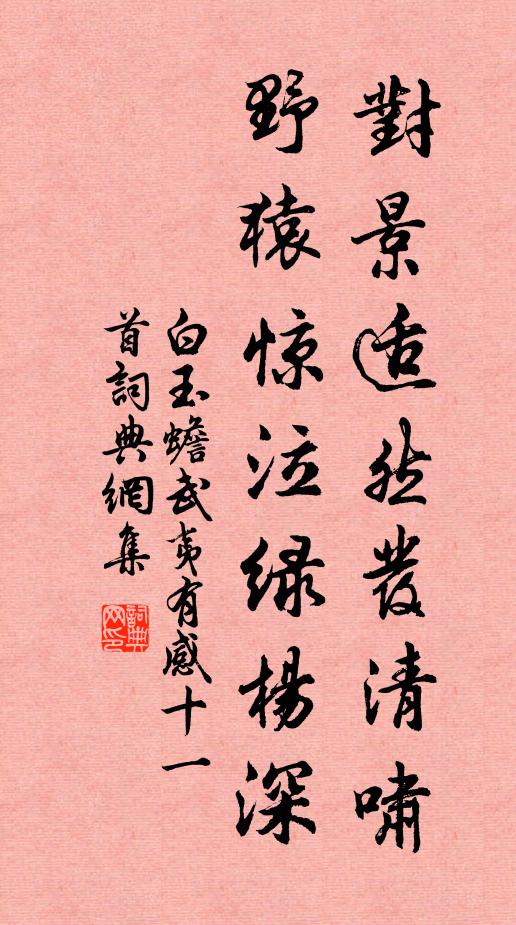 對景适然發清嘯
野猿惊泣绿楊深
白玉蟾武夷有感十一
首詞典網集
詞典
网印